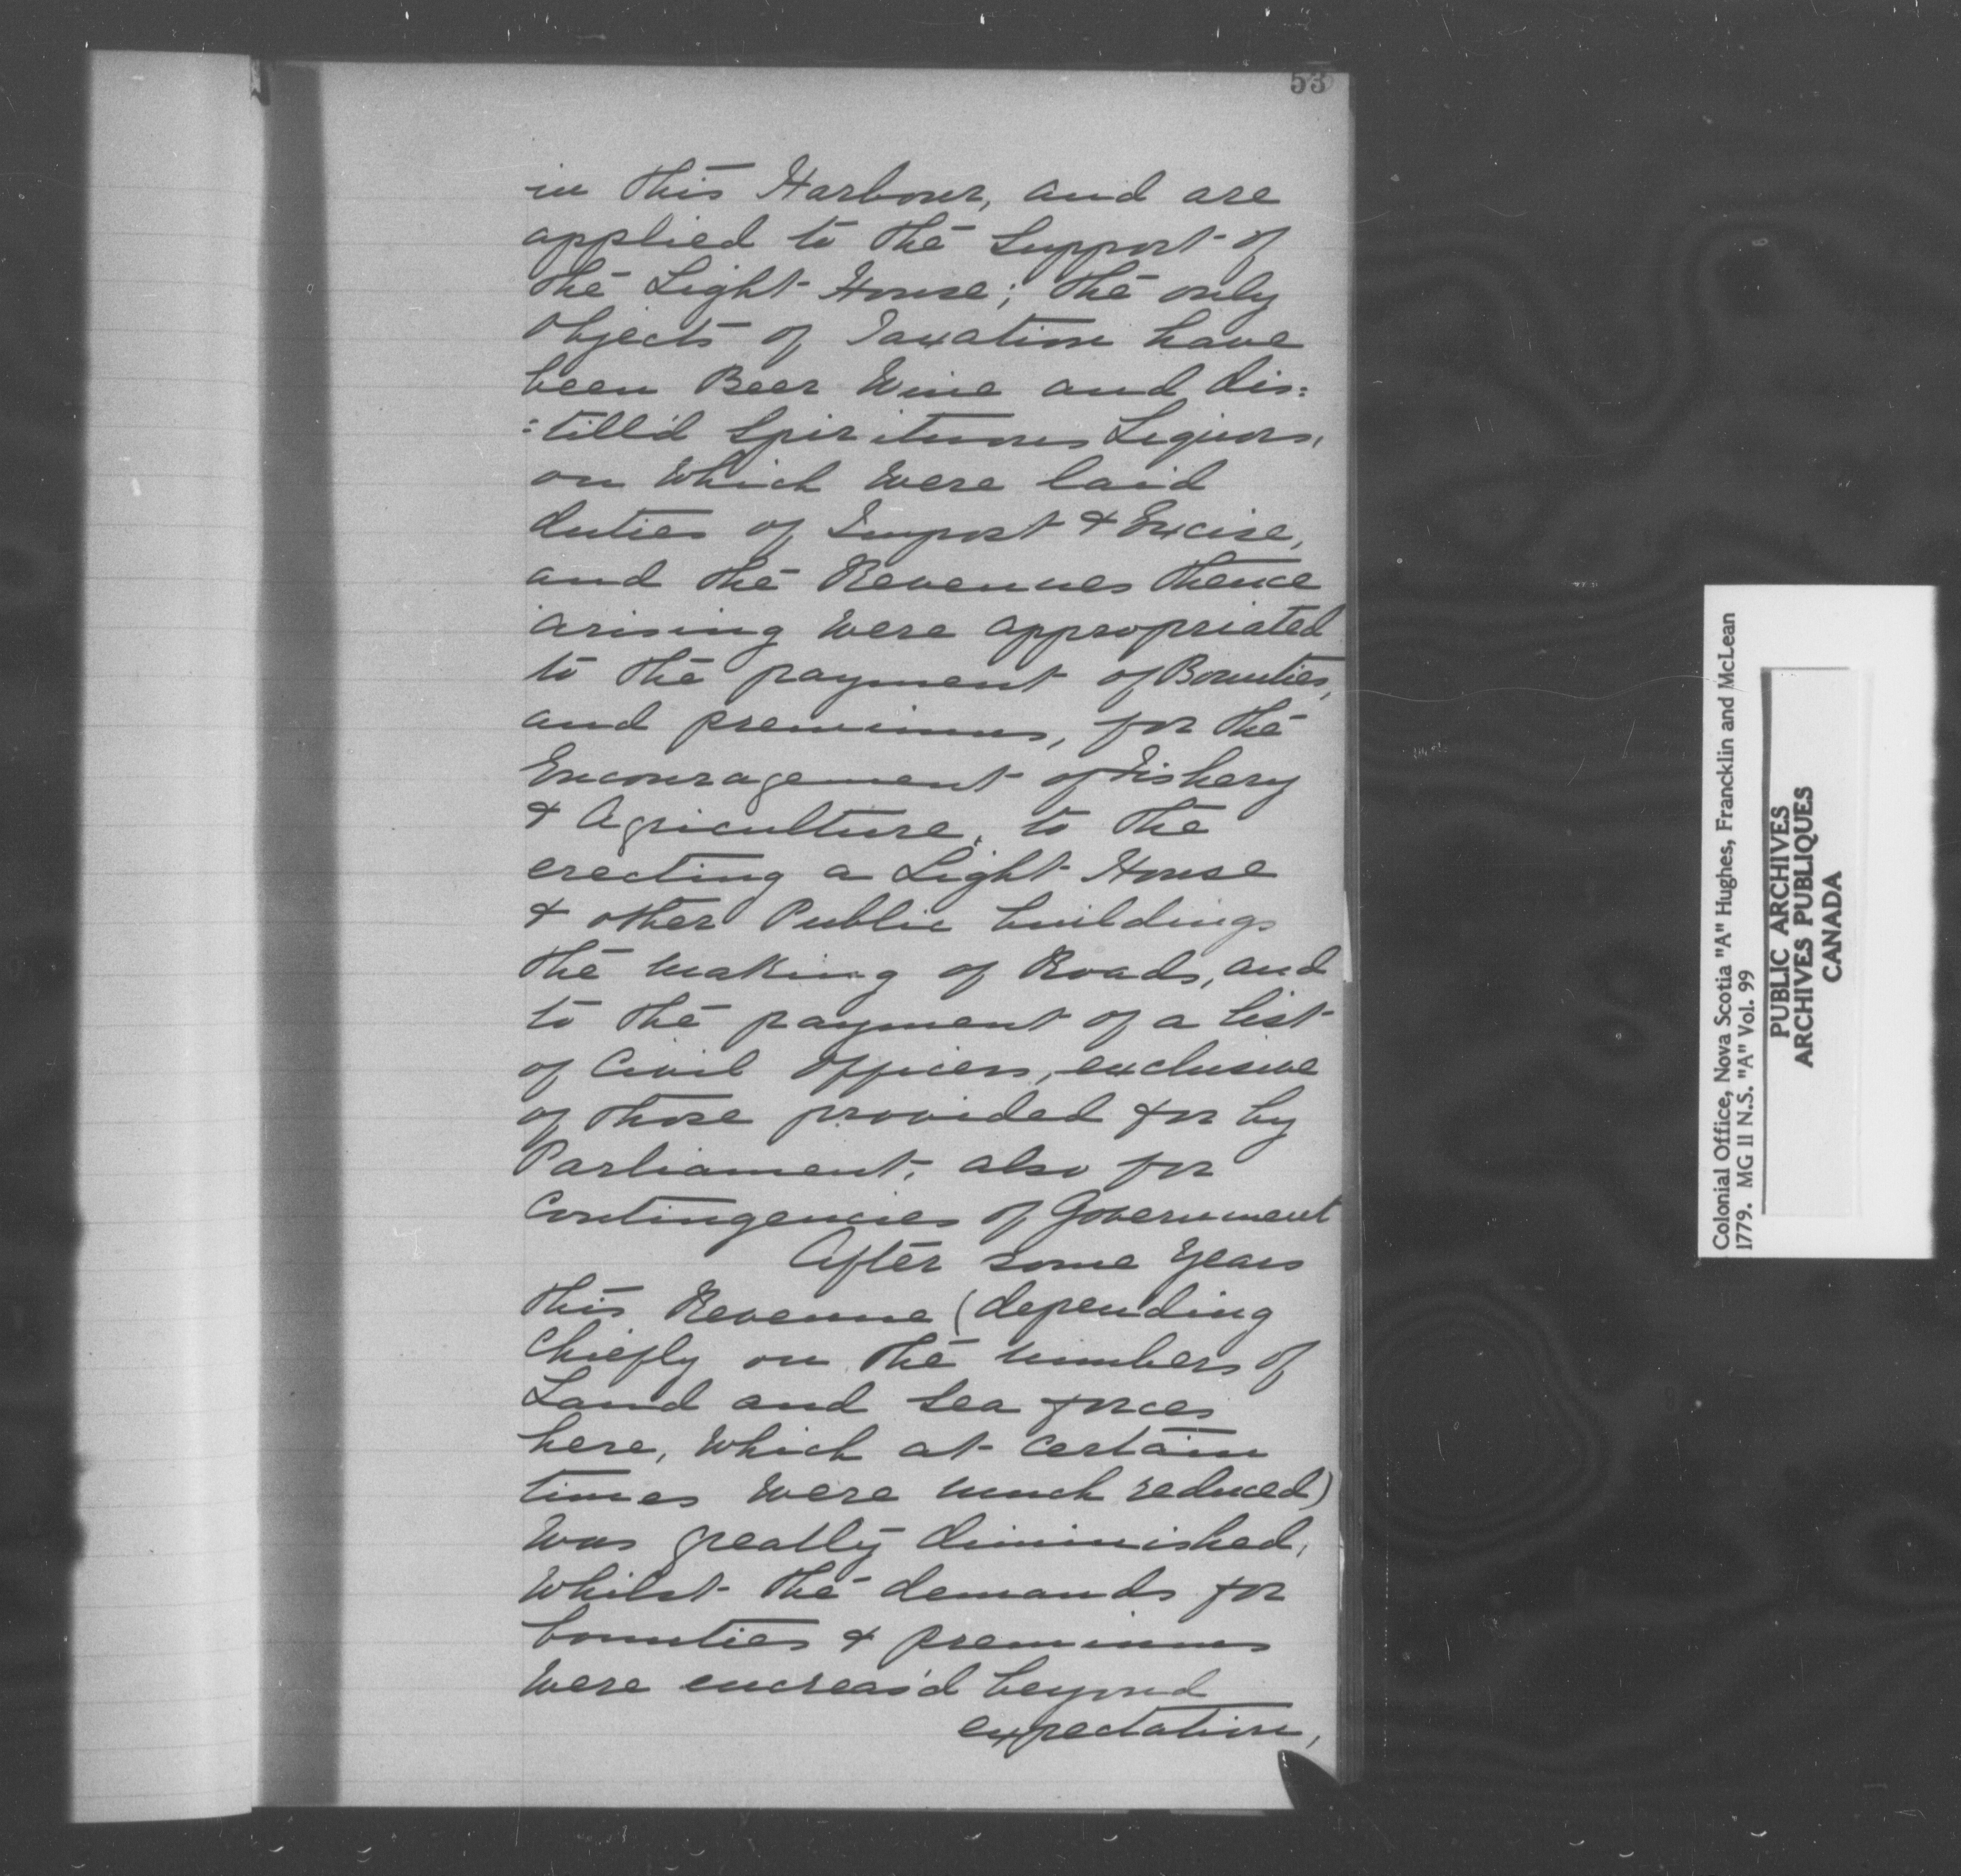 53
in this Harbour, and are
applied to the Support of
the Light House; the only
objects of Taxation have
been Beer Wine and dis:
:till'd Spirituous Liquors,
on Which Were laid
duties of Impost & Excise,
and the Revenues thence
arising Were appropriated
to the payment of Bounties,
and premiums, for the
Encouragement of Fishery
& Agriculture, to the
erecting a Light House
& other Public buildings
the making of Roads, and
to the payment of a list
of Civil Officers, exclusive
of those provided for by
Parliament, also for
Contingencies of Government
After some Years
this Revenue (depending
Chiefly on the numbers of
Land and Sea forces
here, Which at Certain
times Were much reduced)
Was greatly diminished,
Whilst the demands for
bounties & premiums
Were encreas'd beyond
expectation,
Colonial Office, Nova Scotia "A" Hughes, Francklin and McLean
1779. MG 11 N.S. "A" Vol. 99
PUBLIC ARCHIVES
ARCHIVES PUBLIQUES
CANADA